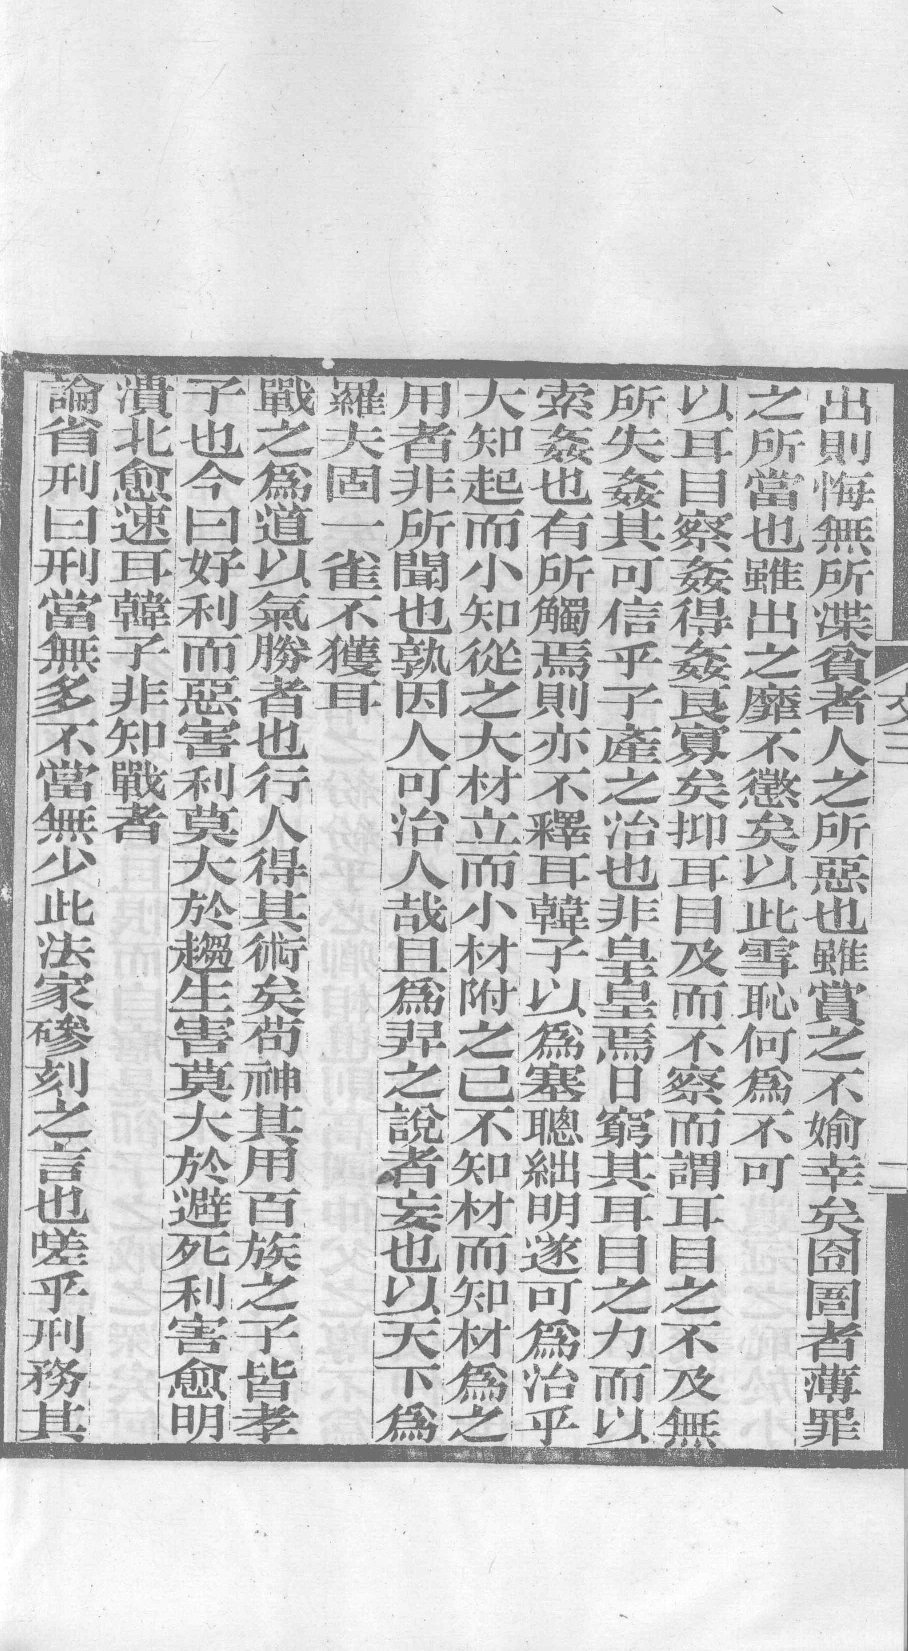 出則悔無所渫貧者人之所惡也雖賞之不媮幸矣囹圄者薄罪
之所當也雖出之靡不懲矣以此雪恥何爲不可
以耳目察姦得姦良寡矣抑耳目及而不察而謂耳目之不及無
所失姦其可信乎子產之治也非皇皇焉日窮其耳目之力而以
索姦也有所觸焉則亦不釋耳韓子以爲塞聰絀明遂可爲治乎
大知起而小知從之大材立而小材附之已不知材而知材爲之
用者非所聞也孰因人可治人哉且爲羿之說者妄也以天下爲
羅夫固一雀不獲耳
戰之爲道以氣勝者也行人得其術矣苟神其用百族之子皆孝
子也今曰好利而惡害利莫大於趨生害莫大於避死利害愈明
潰北愈速耳韓子非知戰者
論省刑曰刑當無多不當無少此法家磣刻之言也嗟乎刑務其
文三
一